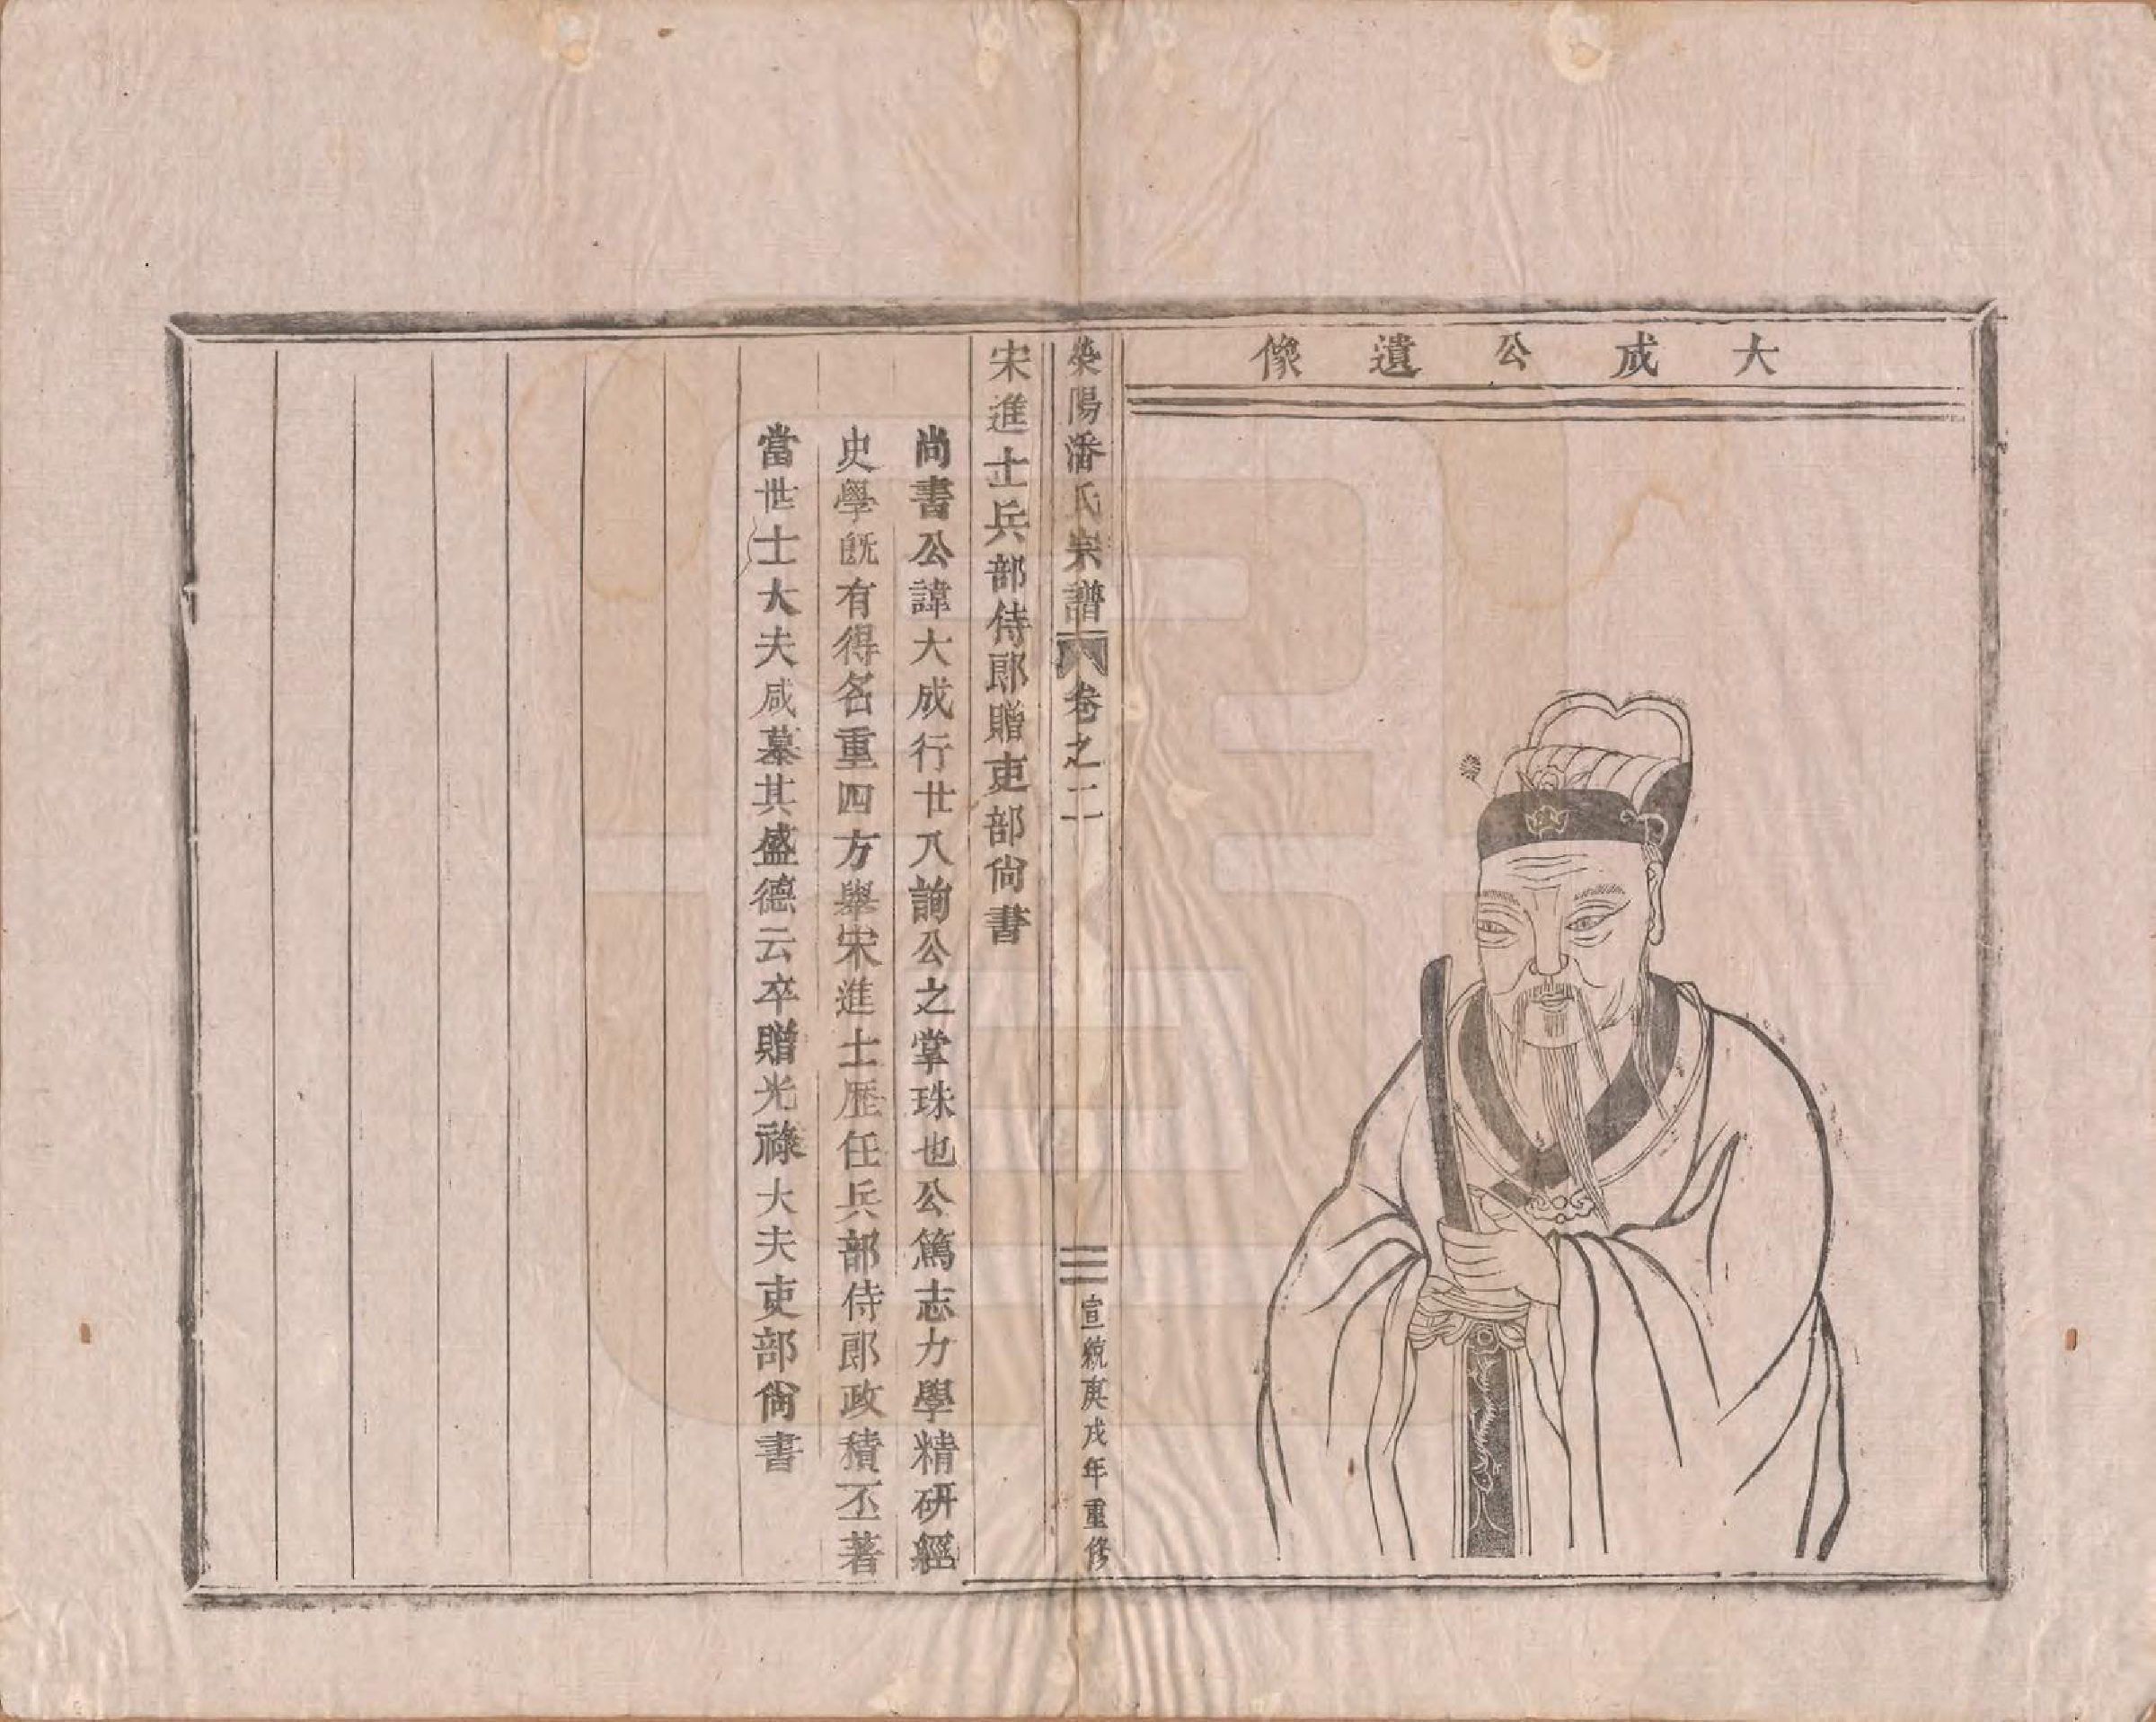 大成公遺像
滎陽潘氏宗譜 卷之二 三 宣統庚戌年重修
宋進士兵部侍郎贈吏部尙書
尚書公諱大成行廿八詢公之掌珠也公篤志力學精研經
史學旣有得名重四方舉宋進士歷任兵部侍郎政積丕著
當世士大夫咸慕其盛德云卒贈光祿大夫吏部尙書